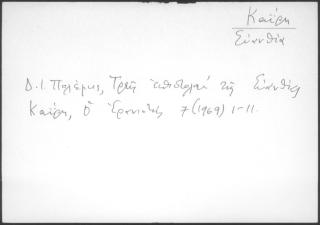 Καΐρη
Εὐανθία
Δ.Ι. Πολέμης, Τρεῖς ἐπιστολαί τῆς Εὐανθίας
Καΐρη, Ὁ Ἐρανιστής 7 (1969) 1-11.